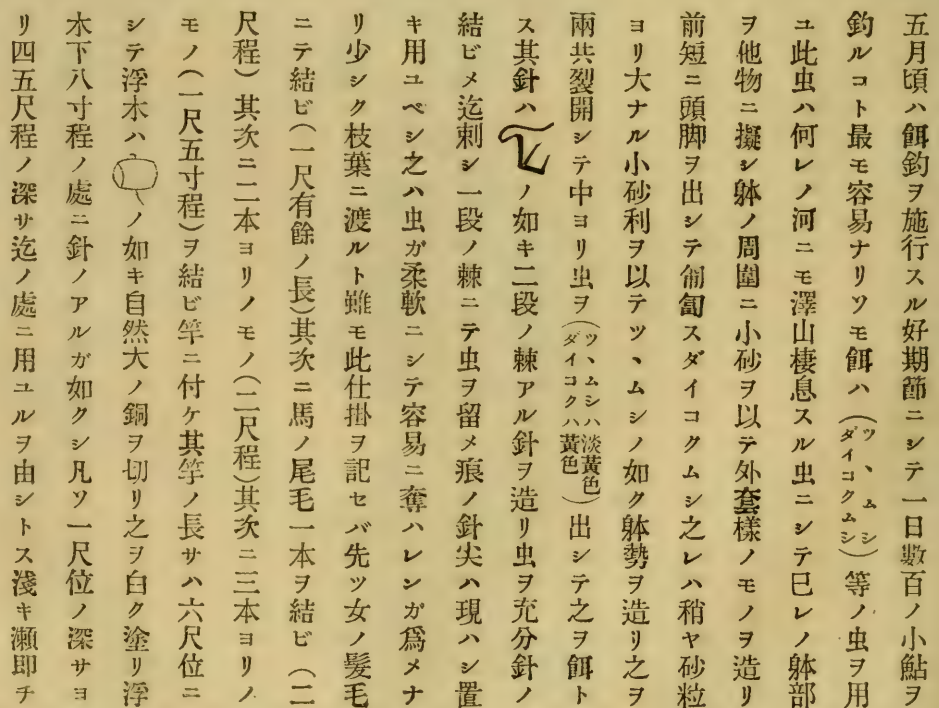 五月頃ハ餌釣ヲ施行スル好期節ニシテ一日數百ノ小鮎ヲ
釣ルコト最モ容易ナリソモ餌ハ(ツヽムシ ダイコクムシ)等ノ虫ヲ用
ユ此虫ハ何レノ河ニモ澤山棲息スル虫ニシテ已レノ躰部
ヲ他物ニ擬シ躰ノ周圍ニ小砂ヲ以テ外套樣ノモノヲ造リ
前短ニ頭脚ヲ出シテ匍匐スダイコクムシ之レハ稍ヤ砂粒
ヨリ大ナル小砂利ヲ以テツヽムシノ如ク躰勢ヲ造リ之ヲ
兩共裂開シテ中ヨリ虫ヲ(ツヽムシハ淡黃色 ダイコクハ黃色)出シテ之ヲ餌ト
ス其針ハノ如キ二段ノ棘アル針ヲ造リ虫ヲ充分針ノ
結ビメ迄刺シ一段ノ棘ニテ虫ヲ留メ痕ノ針尖ハ現ハシ置
キ用ユベシ之ハ虫ガ柔軟ニシテ容易ニ奪ハレンガ爲メナ
リ少シク枝葉ニ渡ルト雖モ此仕掛ヲ記セバ先ツ女ノ髮毛
ニテ結ビ(一尺有餘ノ長)其次ニ馬ノ尾毛一本ヲ結ビ(二
尺程)其次ニ二本ヨリノモノ(二尺程)其次ニ三本ヨリノ
モノ(一尺五寸程)ヲ結ビ竿ニ付ケ其竿ノ長サハ六尺位ニ
シテ浮木ハノ如キ自然大ノ鋼ヲ切リ之ヲ白ク塗リ浮
木下八寸程ノ處ニ針ノアルガ如クシ凡ソ一尺位ノ深サヨ
リ四五尺程ノ深サ迄ノ處ニ用ユルヲ由シトス淺キ瀬即チ